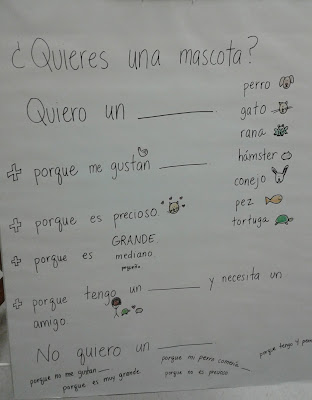 ¿Quieres una mascota?
Quiero un ______
perro
gato
rana
hámster
conejo
pez
tortuga
+ porque me gustan ______
+ porque es precioso
+ porque es GRANDE.
mediano.
pequeño
+ porque tengo un ____ y necesita un
amigo
No quiero un ______
porque no me gustan ___
porque es muy grande
porque mi perro comería __
porque no es precioso
porque tengo 4